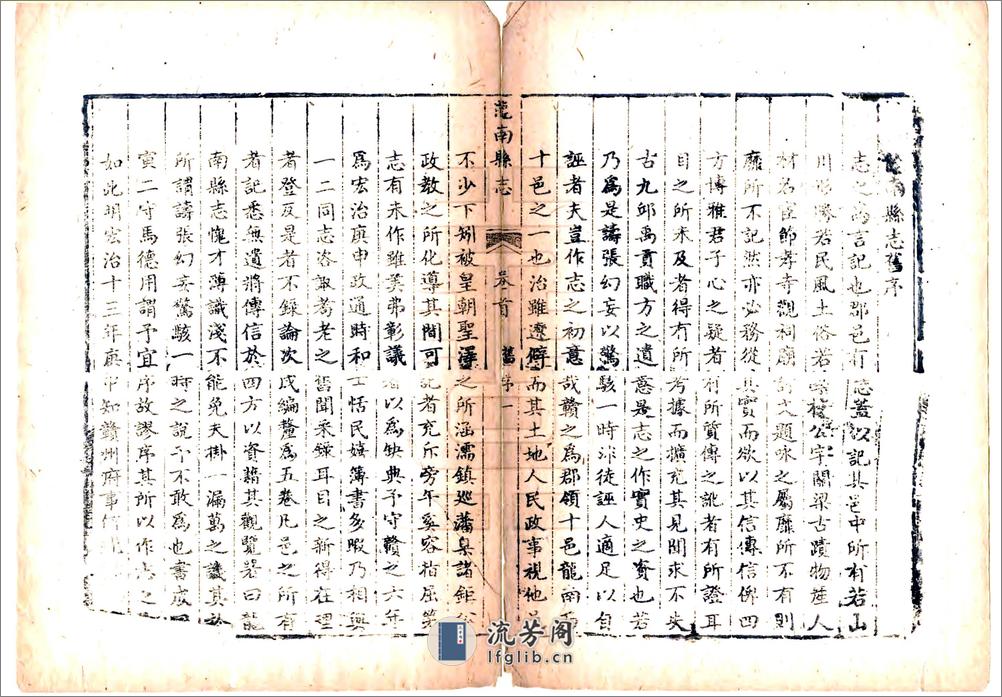 南縣志舊序
志之為言記也郡邑有志蓋以記其邑中所有若山
川形勝若民風土俗若公宇關梁古蹟物產人
材名宦節孝寺觀祠廟詩文題咏之屬靡所不有則
靡所不記然亦必務從其實而欲以其信傳信俾四
方博雅君子心之疑者有所質傳之訛者有所證耳
目之所未及者得有所考據而擴充其見聞求不失
古九邱禹貢職方之遺意是志之作實史之資也若
乃為是譸張幻妄以驚駭一時非徒誣人適足以自
誣者夫豈作志之初意哉贛之為郡領十邑龍南
十邑之一也治雖遼僻而其土地人民政事視他邑
龍南縣志
卷首
舊序一
不少下矧被皇朝聖澤之所涵濡鎮巡藩臬諸鉅公
政教之所化導其間可記者充斥旁午奚容指屈第
志有未作雖美弗彰議者以為缺典予守贛之六年
為宏治庚申政通時和士恬民嬉簿書多暇乃相與
一二同志咨諏耆老之舊聞采錄耳目之新得在理
者登反是者不錄論次成編釐為五卷凡邑之所有
者記悉無遺將傳信於四方以資藉其觀覽若曰龍
南縣志愧才薄識淺不能免夫掛一漏萬之譏其於
所謂譸張幻妄驚駭一時之說予不敢為也書成同
寅二守馬德用謂予宜序故謬序其所以作志之
如此明宏治十三年庚申知贛州府事何
流芳阁
lfglib.cn